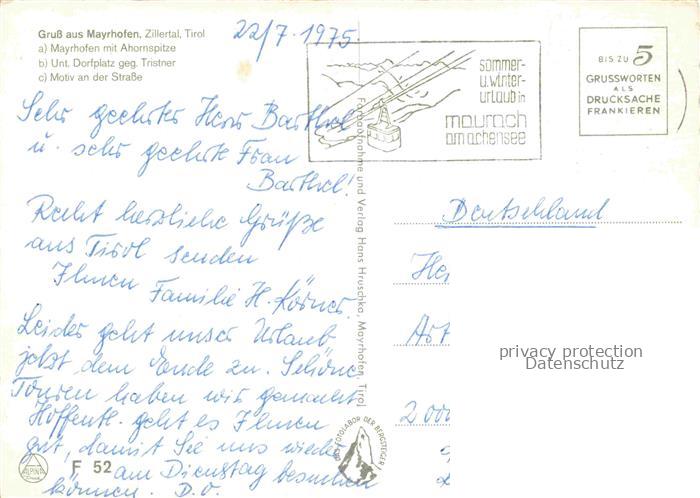 Gruß aus Mayrhofen, Zillertal, Tirol
a) Mayrhofen mit Ahornspitze
b) Unt. Dorfplatz geg. Tristner
c) Motiv an der Straße
22/7. 1975.
Sehr geehrter Herr Barthel
u. sehr geehrte Frau
Barthel!
Recht herzliche Grüße
aus Tirol senden
Ihnen Familie H. Körner.
Leider geht unser Urlaub
jetzt dem Ende zu. Schöne
Touren haben wir gemacht
Hoffentl. geht es Ihnen
gut, damit Sie uns wieder
am Dienstag besuchen
können. D.O.
F 52
ALPINA
Druck
Farbaufnahme und Verlag Hans Hruschka, Mayrhofen, Tirol
FOTOLABOR DER BERGSTEIGER
sommer-
u. winter-
urlaub in
maurach
am achensee
BIS ZU 5
GRUSSWORTEN
ALS
DRUCKSACHE
FRANKIEREN
Deutschland
He
Art
2000
privacy protection
Datenschutz